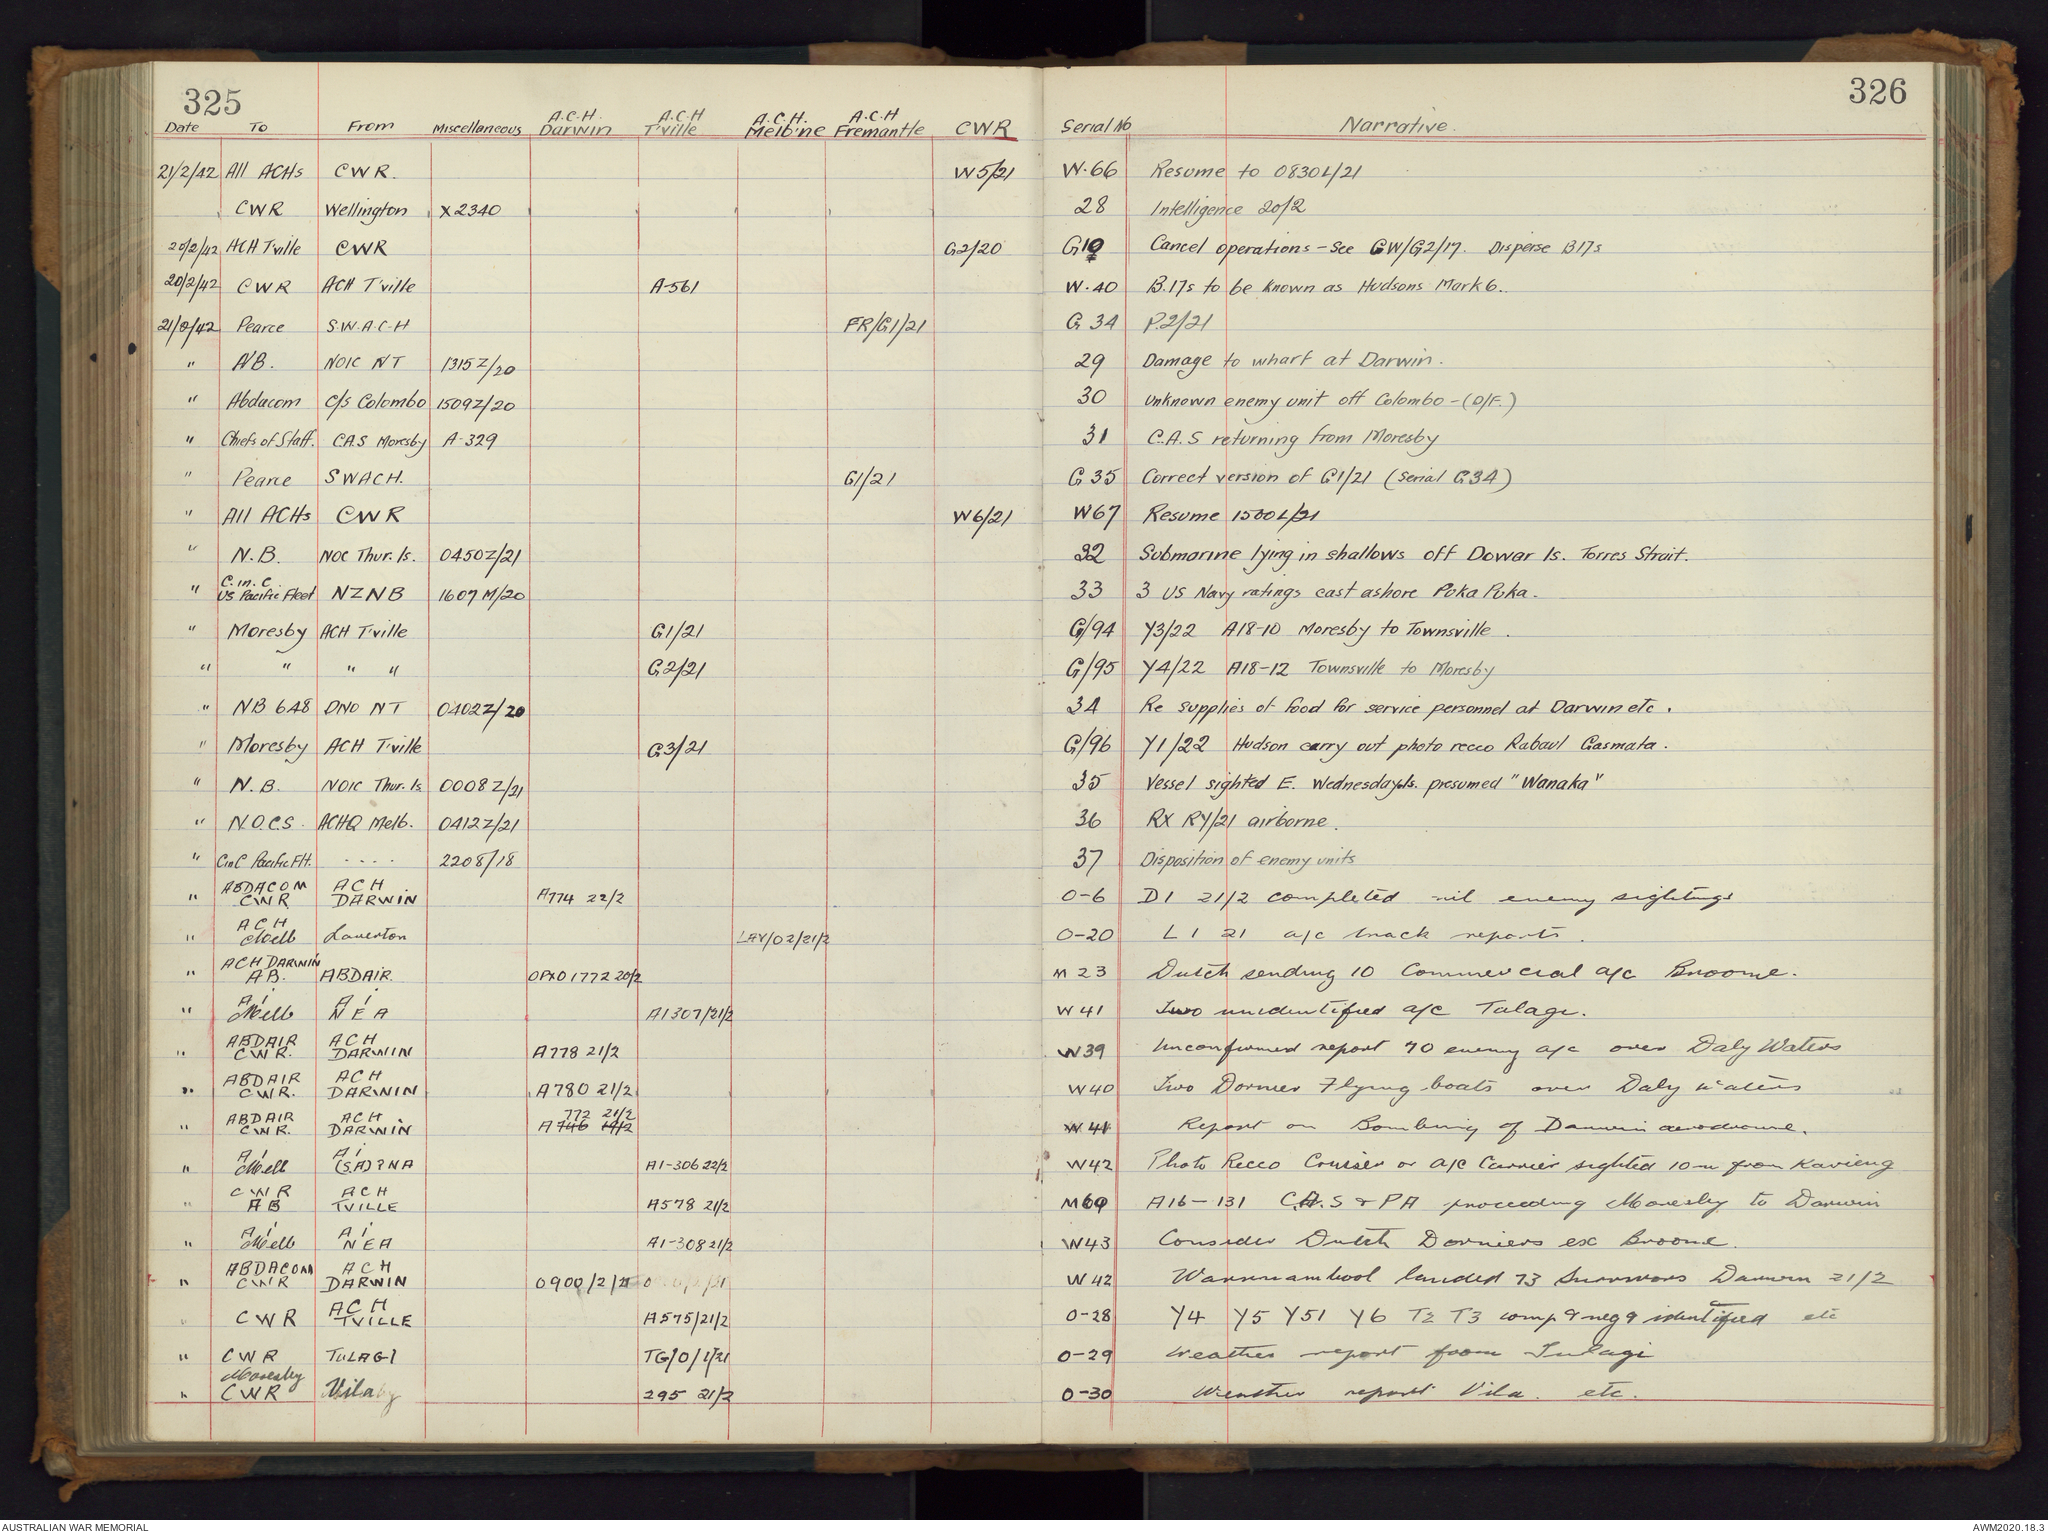 325
326
A.C.H. A.C.H A.C.H. A.C.H
Date To From Miscellaneous Darwin T'ville Melb'ne Fremantle CWR Serial No Narrative.
21/2/42 All ACHs CWR. W5/21 W.66 Resume to 0830L/21
CWR Wellington X2340 28 Intelligence 20/2
20/2/42 ACH T'ville CWR G2/20 Cancel operations - See GW/G2/17. Disperse B17s
20/2/42 CWR ACH T'ville A-561 W.40 B.17s to be known as Hudsons Mark 6.
21/2/42 Pearce S.W.A.C.H FR/G1/21 G 34 P.2/21
" NB. NOIC NT 1315Z/20 29 Damage to wharf at Darwin.
" Abdacom C/S Colombo 1509Z/20 30 Unknown enemy unit off Colombo - (D/F.)
" Chiefs of Staff. C.A.S Moresby A-329 31 C.A.S returning from Moresby
" Pearce SWACH. G1/21 G 35 Correct version of G1/21 (Serial G34)
" All ACHs CWR W6/21 W67 Resume 1500L/21
" N.B. NOC Thur. Is. 0450Z/21 32 Submarine lying in shallows off Dowar Is. Torres Strait.
" C. in. C. US Pacific Fleet NZNB 1607 M/20 33 3 US Navy ratings cast ashore Puka Puka.
" Moresby ACH T'ville G1/21 G/94 Y3/22 A18-10 Moresby to Townsville.
" " " " G2/21 G/95 Y4/22 A18-12 Townsville to Moresby
" NB 648 DNO NT 0402Z/20 34 Re supplies of food for service personnel at Darwin etc.
" Moresby ACH T'ville G3/21 G/96 Y1/22 Hudson carry out photo recco Rabaul Gasmata.
" N.B. NOIC Thur. Is 0008Z/21 35 Vessel sighted E. Wednesday Is. presumed "Wanaka"
" N.O.C.S. ACHQ Melb. 0412Z/21 36 RX RY/21 airborne.
" CinC Pacific Flt. - - - - 2208/18 37 Disposition of enemy units
" ABDACOM CWR ACH DARWIN A774 22/2 O-6 D1 21/2 completed nil enemy sightings
" ACH Melb Laverton LAV/02/21/2 O-20 L 1 21 a/c track reports.
" ACH DARWIN AB. ABDAIR. OPXO1772 20/2 M 23 Dutch sending 10 Commercial a/c Broome.
" AI Melb AI NEA AI307/21/2 W41 Two unidentified a/c Tulagi.
" ABDAIR CWR. ACH DARWIN A778 21/2 W39 Unconfirmed report 70 enemy a/c over Daly Waters
" ABDAIR CWR. ACH DARWIN A780 21/2 W40 Two Dornier Flying boats over Daly Waters
" ABDAIR CWR. ACH DARWIN 772 21/2 A746 19/2 W 41 Report on Bombing of Darwin aerodrome.
" AI Melb AI (SA)?NA AI-306 22/2 W42 Photo Recco Cruiser or A/C Carrier sighted 10m from Kavieng
" CWR AB ACH TVILLE A578 21/2 M69 A16-131 C.A.S & PA proceeding Moresby to Darwin
" AI Melb AI NEA AI-308 21/2 W43 Consider Dutch Dorniers ex Broome.
" ABDACOM CWR ACH DARWIN 0900/2/21 W42 Warrnambool landed 73 Survivors Darwin 21/2
" CWR ACH TVILLE A575/21/2 O-28 Y4 Y5 Y51 Y6 T2 T3 comp & neg & identified etc
" CWR TULAGI TG/O/1/21 O-29 Weather report from Tulagi
" Moresby CWR Vila 295 21/2 O-30 Weather report Vila. etc.
AUSTRALIAN WAR MEMORIAL
AWM2020.18.3